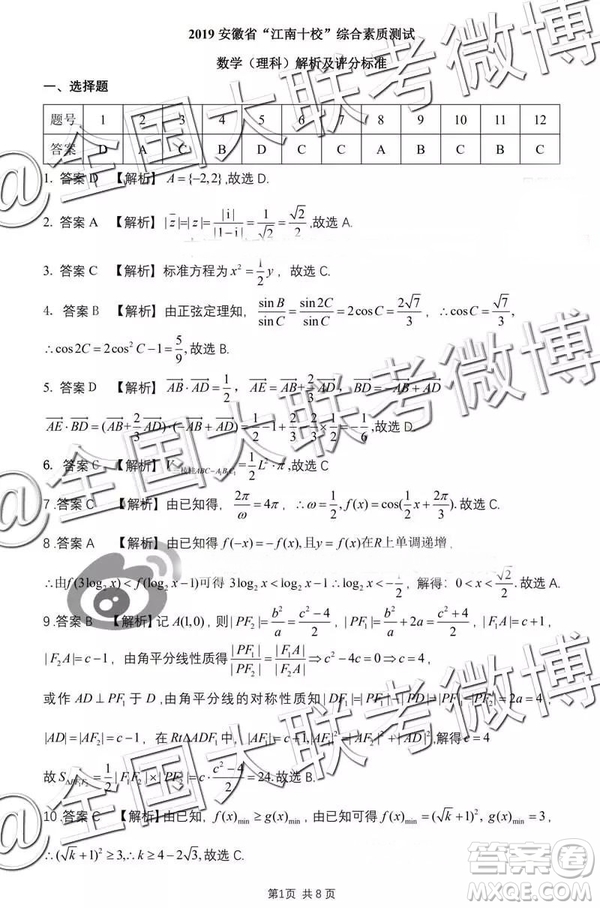 2019 安徽省“江南十校”综合素质测试
数学（理科）解析及评分标准
一、选择题
题号 1 2 3 4 5 6 7 8 9 10 11 12
答案 D A C B D C C A B C B C
1. 答案 D 【解析】A={-2,2},故选 D.
2. 答案 A 【解析】|z̅|=|z|=|i|/|1-i|=1/√2=√2/2,故选 A.
3. 答案 C 【解析】标准方程为 x²=1/2 y，故选 C.
4. 答案 B 【解析】由正弦定理知，sin B/sin C=sin 2C/sin C=2cos C=2√7/3，∴cos C=√7/3,
∴cos 2C=2cos² C-1=5/9,故选 B.
5. 答案 D 【解析】AB·AD=1/2，AE=AB+2/3 AD，BD=-AB+AD
AE·BD=(AB+2/3 AD)·(-AB+AD)=-1+1/2-1/2×2/3+2/3=-1/6,故选 D.
6. 答案 C 【解析】=1/2 L²·π,故选 C
7.答案 C 【解析】由已知得，2π/ω=4π，∴ω=1/2,f(x)=cos(1/2 x+2π/3).故选 C.
8.答案 A 【解析】由已知得 f(-x)=-f(x),且y=f(x)在R上单调递增，
∴由f(3log₂ x)<f(log₂ x-1)可得 3log₂ x<log₂ x-1∴log₂ x<-1/2，解得：0<x<√2/2,故选 A.
9.答案 B 【解析】记 A(1,0)，则|PF₂|=b²/a=(c²-4)/2，|PF₁|=b²/a+2a=(c²+4)/2，|F₁A|=c+1，
|F₂A|=c-1，由角平分线性质得|PF₁|/|PF₂|=|F₁A|/|F₂A|⇒c²-4c=0⇒c=4
或作 AD⊥PF₁于 D,由角平分线的对称性质知|DF₁|=|PF₁|-|PD|=|PF₁|-|PF₂|=2a=4，
|AD|=|AF₂|=c-1，在 Rt△ADF₁中，|AF₁|²=|DF₁|²+|AD|²,解得c=4
故 S△PF₁F₂=1/2|F₁F₂|×|PF₂|=c·(c²-4)/2=24.故选 B.
10.答案 C 【解析】由已知，f(x)min≥g(x)min，由已知可得 f(x)min=(√k+1)², g(x)min=3，
∴(√k+1)²≥3,∴k≥4-2√3,故选 C.
第1页 共8页
@全国大联考微博
@全国大联考微博
@全国大联考微博
答案圈
MXQE.COM